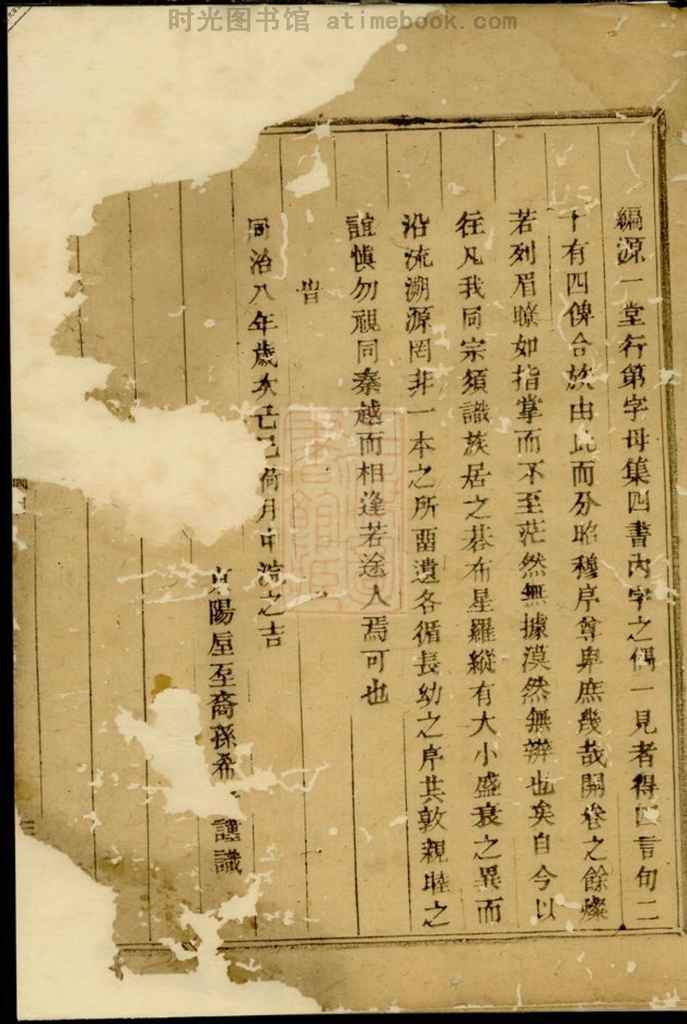 时光图书馆 atimebook.com
編源一堂行第字母集四書內字之偶一見者得四言句二
十有四俾合族由此而分昭穆序尊卑庶幾哉開卷之餘燦
若列眉瞭如指掌而不至茫然無據漠然無辨也矣自今以
往凡我同宗須識族居之碁布星羅縱有大小盛衰之異而
沿流溯源罔非一本之所畱遺各循長幼之序共敦親睦之
誼慎勿視同秦越而相逢若途人焉可也
旹
同治八年歲次己巳荷月中浣之吉
陽屋至裔孫希謹識